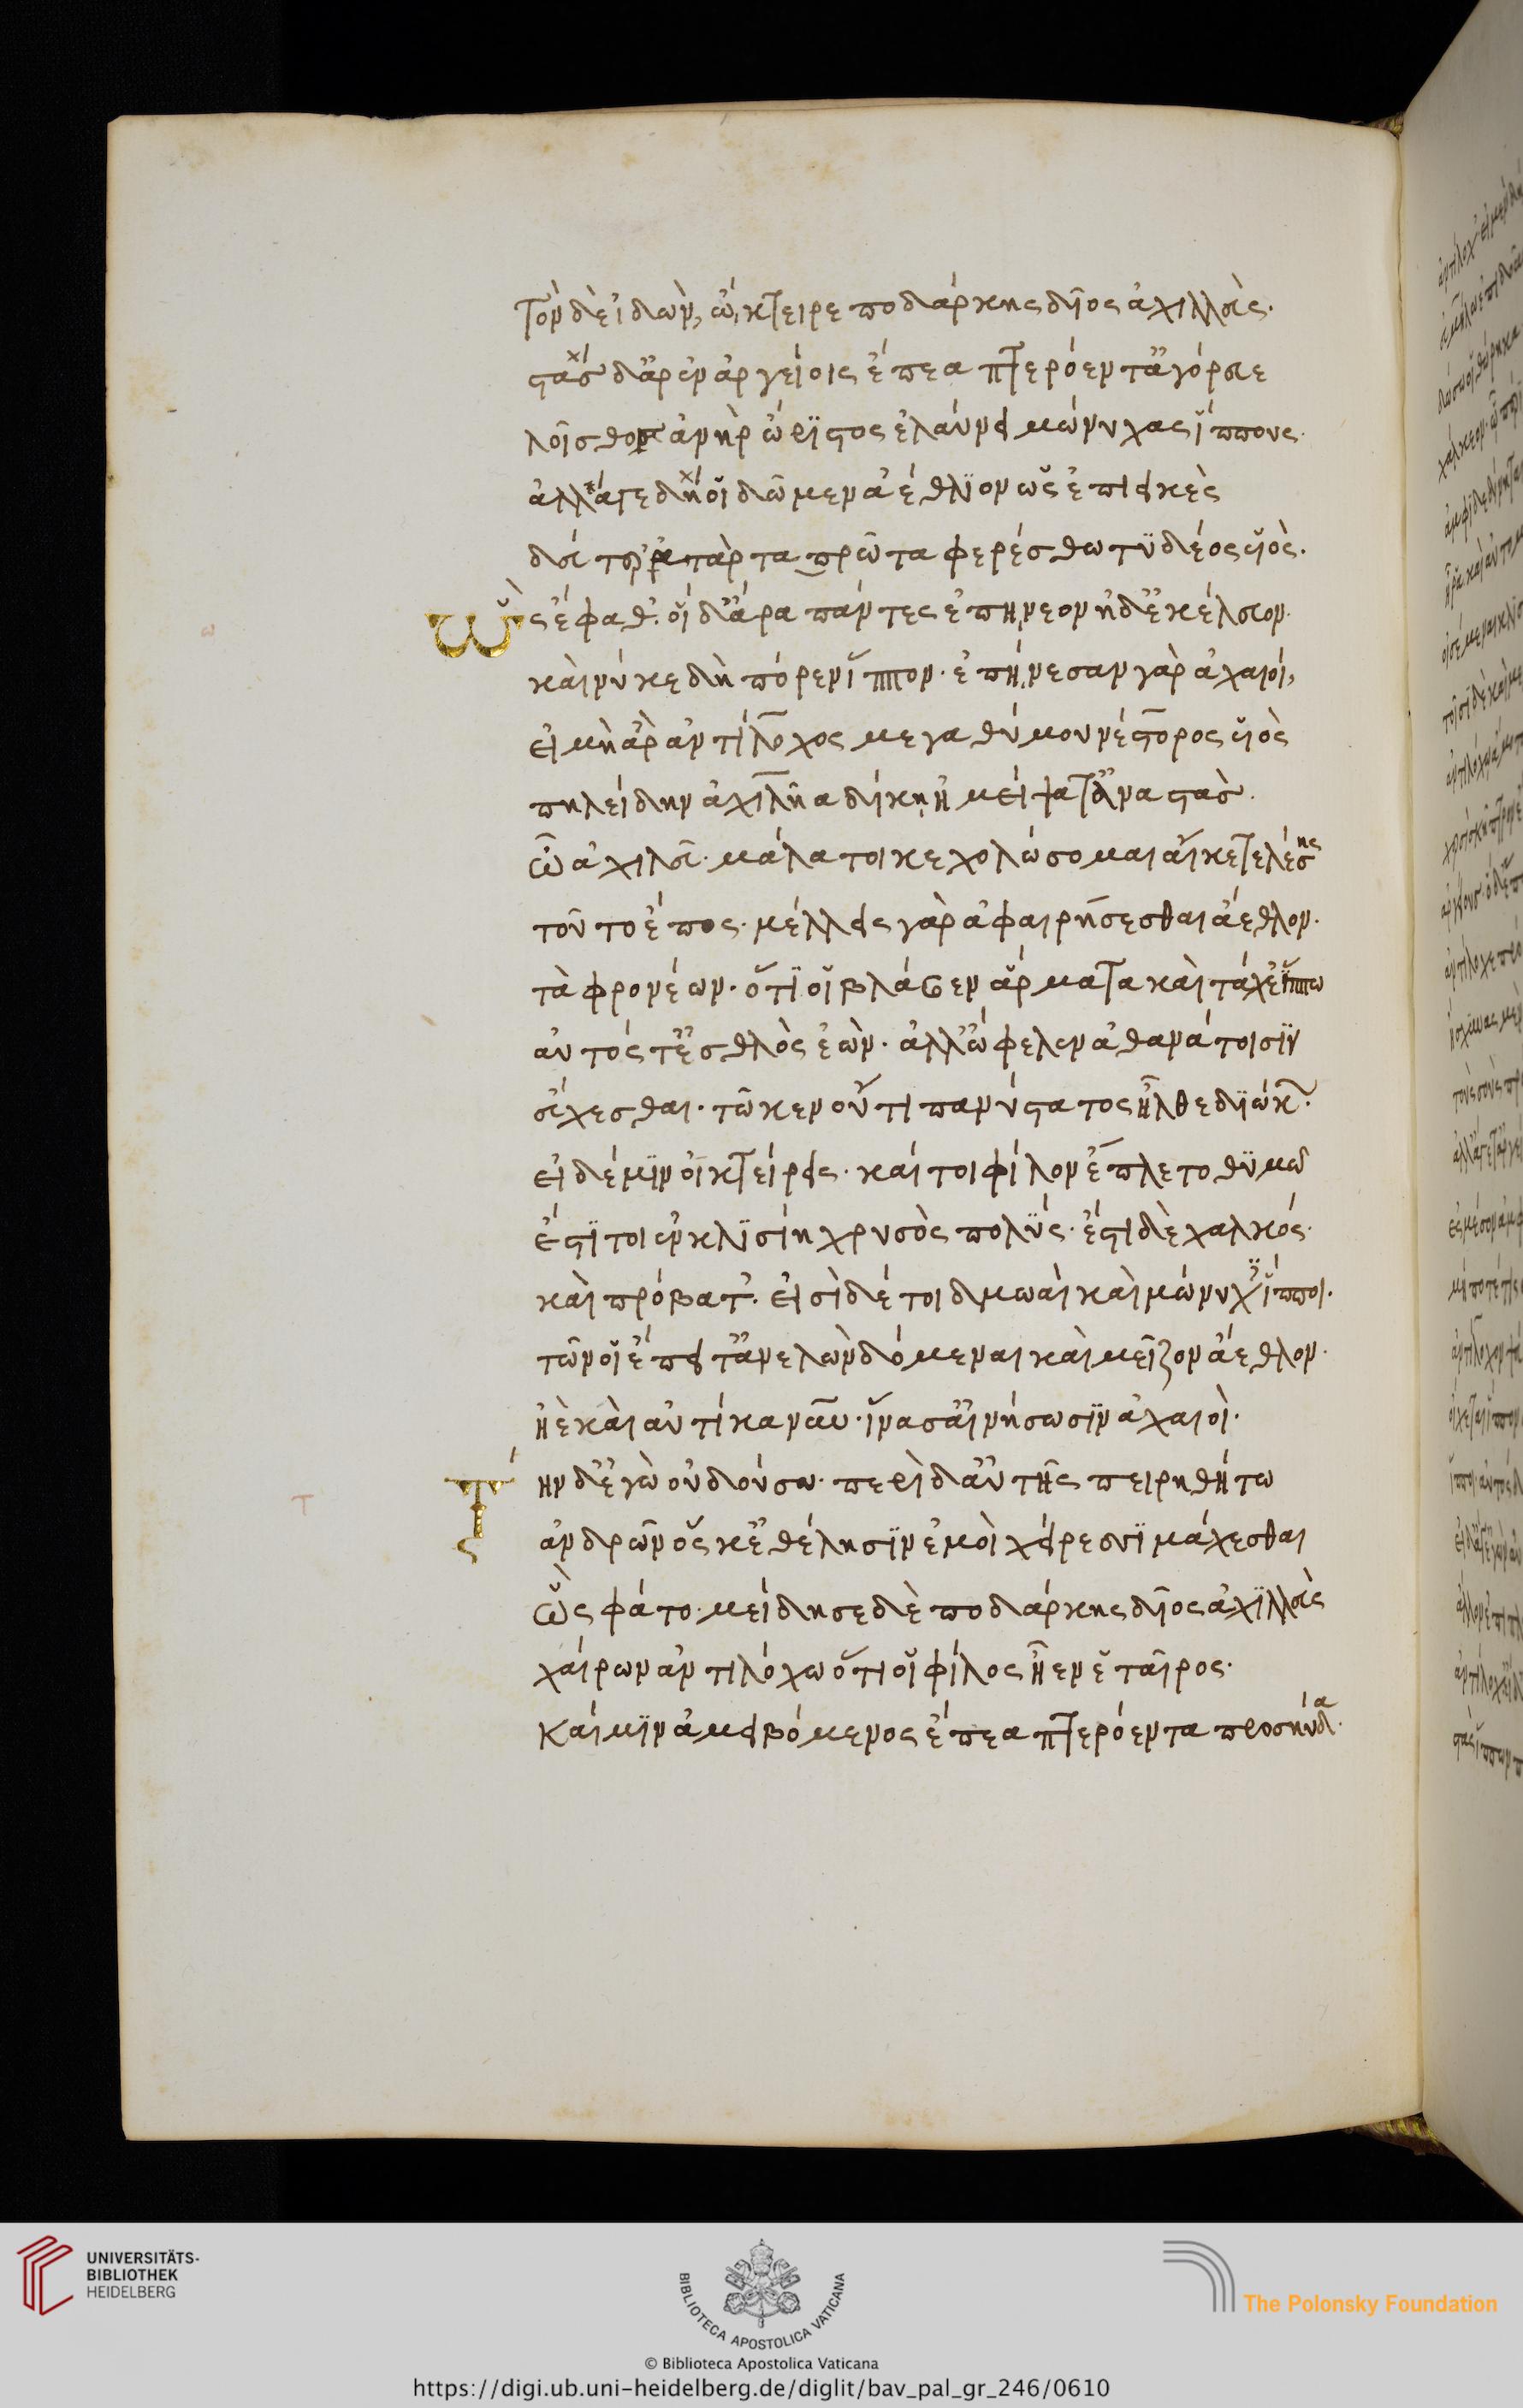 Τὸν δὲ ἰδὼν, ὤκτειρε ποδάρκης δῖος ἀχιλλεὺς.
στὰς δ᾽ἄρ ἐν ἀργείοις ἔπεα πτερόεντ᾽ἀγόρευε
λοῖσθος ἀνὴρ ὤριστος ἐλαύνει μώνυχας ἵππους.
ἀλλ᾽ἄγε δή οἱ δῶμεν ἀέθλϊον ὡς ἐπιεικὲς
δεύτερ᾽ ἀτὰρ τὰ πρῶτα φερέσθω τϋδέος υἱὸς.
Ὣς ἔφαθ᾽. οἱ δ᾽ἄρα πάντες ἐπήνεον ἠδ᾽ἐκέλευον.
καὶ νύ κε δὴ πόρεν ἵππον. ἐπήνεσαν γὰρ ἀχαιοί,
εἰ μὴ ἄρ᾽ ἀντίλοχος μεγαθύμου νέστορος υἱὸς
πηλείδην ἀχιλῆα δίκῃ ἠμείψατ᾽ἀναστάς.
ὦ ἀχιλεῦ. μάλα τοι κεχολώσομαι αἴ κε τελέσσης
τοῦτο ἔπος. μέλλεις γὰρ ἀφαιρήσεσθαι ἄεθλον.
τὰ φρονέων. ὅτϊ οἱ βλάβεν ἅρματα καὶ ταχέ᾽ἵππω
αὐτός τ᾽ἐσθλὸς ἐών. ἀλλ᾽ὤφελεν ἀθανάτοισϊν
εὔχεσθαι. τῶ κεν οὔτι πανύστατος ἦλθε διώκων.
εἰ δέ μϊν οἰκτείρεις. καί τοι φίλον ἔπλετο θϋμῶ
ἔστϊ τοι ἐν κλϊσίη χρυσὸς πολὺς. ἔστι δὲ χαλκός.
καὶ πρόβατ᾽. εἰσὶ δέ τοι δμωαὶ καὶ μώνυχες ἵπποι.
τῶν οἱ ἔπειτ᾽ἀνελὼν δόμεναι καὶ μεῖζον ἄεθλον.
ἠὲ καὶ αὐτίκα νῦν. ἵνα σ᾽αἰνήσωσϊν ἀχαιοὶ.
Τὴν δ᾽ἐγὼ οὐ δώσω. περὶ δ᾽αὐτῆς πειρηθήτω
ἀνδρῶν ὅς κ᾽ἐθέλησϊν ἐμοὶ χείρεσσϊ μάχεσθαι
Ὣς φάτο. μείδησε δὲ ποδάρκης δῖος ἀχϊλλεὺς
χαίρων ἀντιλόχω ὅτι οἱ φίλος ἦεν ἑταῖρος.
Καί μϊν ἀμειβόμενος ἔπεα πτερόεντα προσηύδα.
UNIVERSITÄTS-
BIBLIOTHEK
HEIDELBERG
BIBLIOTECA APOSTOLICA VATICANA
The Polonsky Foundation
© Biblioteca Apostolica Vaticana
https://digi.ub.uni-heidelberg.de/diglit/bav_pal_gr_246/0610